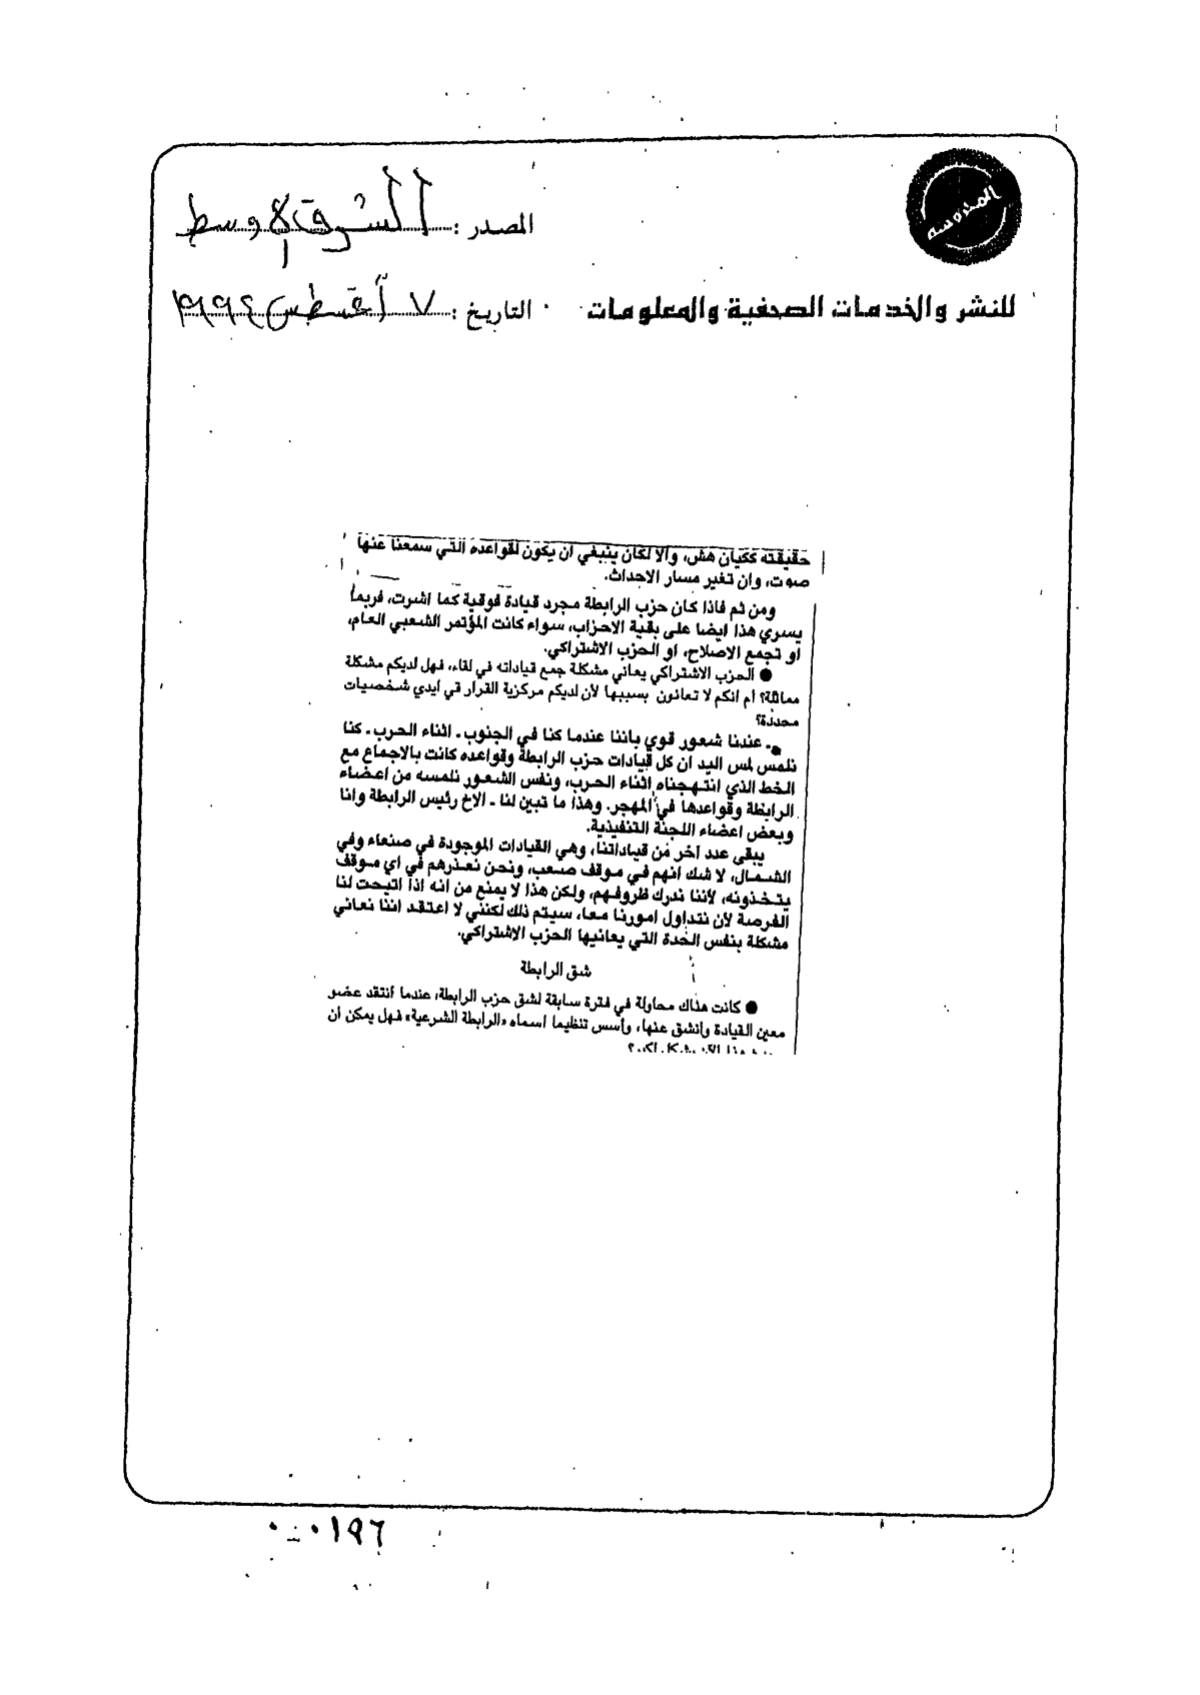 المدروسه
المصدر : الشرق الاوسط
للنشر والخدمات الصحفية والمعلومات
التاريخ : ٧ أغسطس ١٩٩٤
حقيقته ككيان هش، والا لكان ينبغي ان يكون لقواعده التي سمعنا عنها
صوت، وان تغير مسار الاحداث.
ومن ثم فاذا كان حزب الرابطة مجرد قيادة فوقية كما اشرت، فربما
يسري هذا ايضا على بقية الاحزاب، سواء كانت المؤتمر الشعبي العام،
او تجمع الاصلاح، او الحزب الاشتراكي.
● الحزب الاشتراكي يعاني مشكلة جمع قياداته في لقاء، فهل لديكم مشكلة
مماثلة؟ ام انكم لا تعانون بسببها لأن لديكم مركزية القرار في ايدي شخصيات
محددة؟
●ـ عندنا شعور قوي باننا عندما كنا في الجنوب ـ اثناء الحرب ـ كنا
نلمس لمس اليد ان كل قيادات حزب الرابطة وقواعده كانت بالاجماع مع
الخط الذي انتهجناه اثناء الحرب، ونفس الشعور نلمسه من اعضاء
الرابطة وقواعدها في المهجر. وهذا ما تبين لنا ـ الاخ رئيس الرابطة وانا
وبعض اعضاء اللجنة التنفيذية.
يبقى عدد آخر من قياداتنا، وهي القيادات الموجودة في صنعاء وفي
الشمال، لا شك انهم في موقف صعب، ونحن نعذرهم في اي موقف
يتخذونه، لأننا ندرك ظروفهم، ولكن هذا لا يمنع من انه اذا اتيحت لنا
الفرصة لأن نتداول امورنا معا، سيتم ذلك لكنني لا اعتقد اننا نعاني
مشكلة بنفس الحدة التي يعانيها الحزب الاشتراكي.
شق الرابطة
● كانت هناك محاولة في فترة سابقة لشق حزب الرابطة، عندما أنتقد عضو
معين القيادة وانشق عنها، وأسس تنظيما اسماه «الرابطة الشرعية» فهل يمكن ان
هذا الآن بشكل اكبر؟
٠٠٠١٩٦